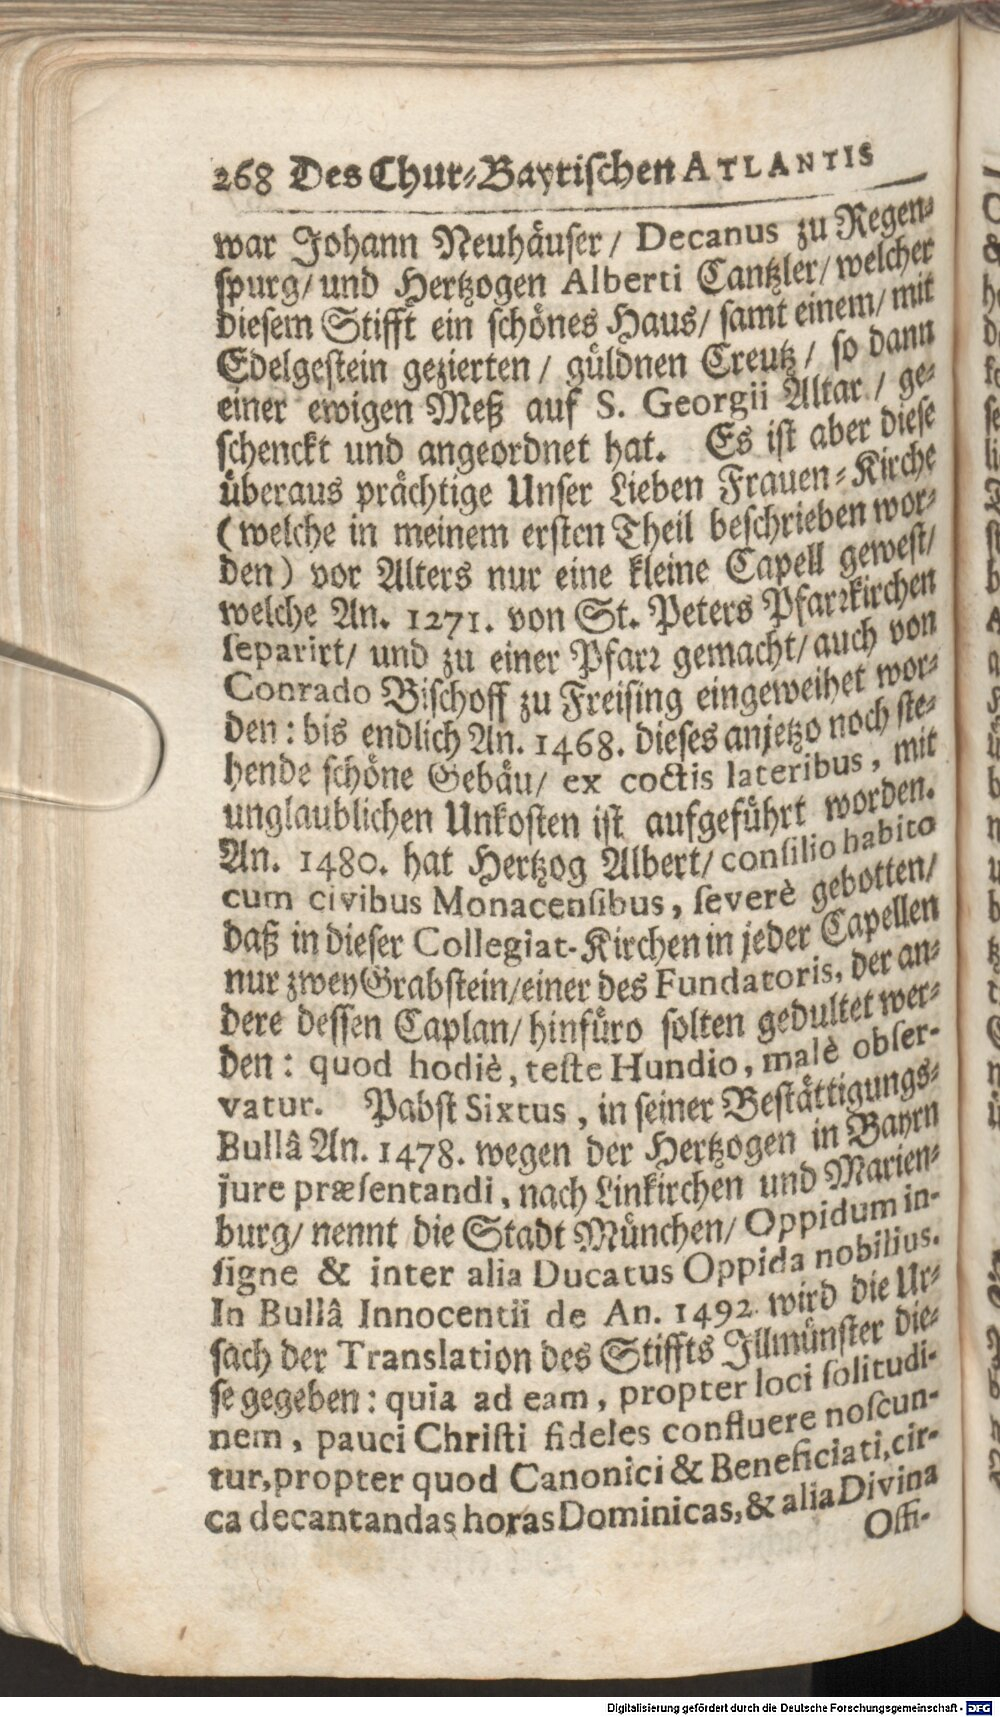 268 Des Chur-Bayrischen ATLANTIS
war Johann Neuhäuser/ Decanus zu Regen-
spurg/ und Hertzogen Alberti Cantzler/ welcher
diesem Stifft ein schönes Haus/ samt einem/ mit
Edelgestein gezierten / güldnen Creutz / so dann
einer ewigen Meß auf S. Georgii Altar / ge-
schenckt und angeordnet hat. Es ist aber diese
überaus prächtige Unser Lieben Frauen-Kirche
(welche in meinem ersten Theil beschrieben wor-
den) vor Alters nur eine kleine Capell gewest/
welche An. 1271. von St. Peters Pfarrkirchen
separirt/ und zu einer Pfarr gemacht/ auch von
Conrado Bischoff zu Freising eingeweihet wor-
den: bis endlich An. 1468. dieses anjetzo noch ste-
hende schöne Gebäu/ ex coctis lateribus, mit
unglaublichen Unkosten ist aufgeführt worden.
An. 1480. hat Hertzog Albert/ consilio habito
cum civibus Monacensibus, severè gebotten/
daß in dieser Collegiat-Kirchen in jeder Capellen
nur zwey Grabstein/einer des Fundatoris, der an-
dere dessen Caplan/ hinfüro solten gedultet wer-
den: quod hodiè, teste Hundio, malè obser-
vatur. Pabst Sixtus, in seiner Bestättigungs-
Bullâ An. 1478. wegen der Hertzogen in Bayrn
jure præsentandi, nach Linkirchen und Marien-
burg/ nennt die Stadt München/ Oppidum in-
signe & inter alia Ducatus Oppida nobilius.
In Bullâ Innocentii de An. 1492. wird die Ur-
sach der Translation des Stiffts Illmünster die-
se gegeben: quia ad eam, propter loci solitudi-
nem, pauci Christi fideles confluere noscun-
tur, propter quod Canonici & Beneficiati, cir-
ca decantandas horas Dominicas, & alia Divina
Offi-
Digitalisierung gefördert durch die Deutsche Forschungsgemeinschaft - DFG